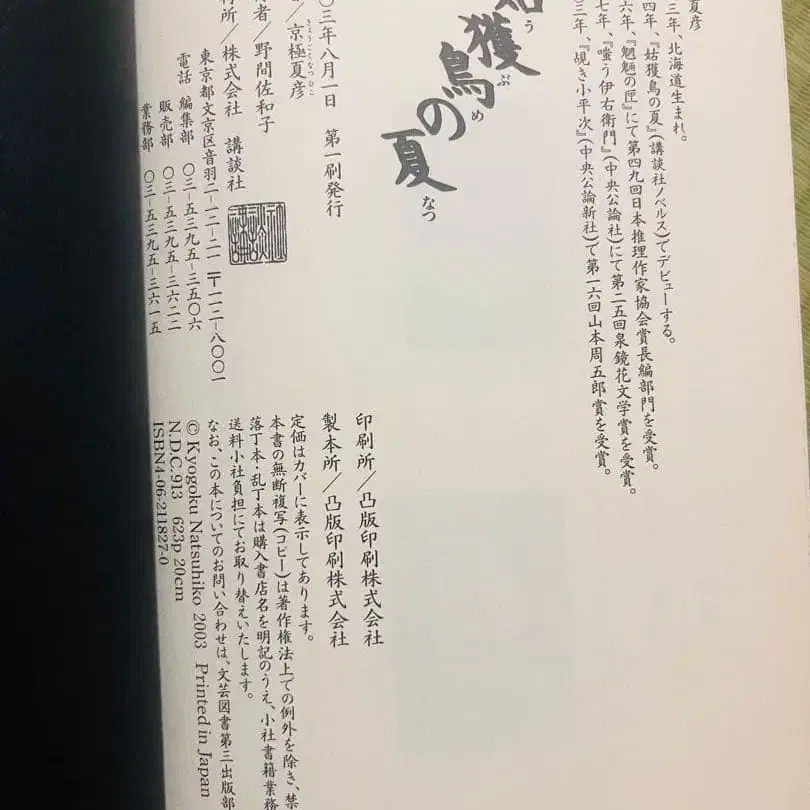 夏彦
三年、北海道生まれ。
四年、『姑獲鳥の夏』(講談社ノベルス)でデビューする。
六年、『魍魎の匣』にて第四九回日本推理作家協会賞長編部門を受賞。
七年、『嗤う伊右衛門』(中央公論社)にて第二五回泉鏡花文学賞を受賞。
三年、『覘き小平次』(中央公論新社)で第一六回山本周五郎賞を受賞。
姑獲鳥の夏
うぶめ なつ
〇三年八月一日 第一刷発行
/京極夏彦
きょうごくなつひこ
者/野間佐和子
行所/株式会社 講談社
東京都文京区音羽二-一二-二一 〒一一二-八〇〇一
電話 編集部 〇三-五三九五-三五〇六
販売部 〇三-五三九五-三六二二
業務部 〇三-五三九五-三六一五
印刷所/凸版印刷株式会社
製本所/凸版印刷株式会社
定価はカバーに表示してあります。
本書の無断複写(コピー)は著作権法上での例外を除き、禁
落丁本・乱丁本は購入書店名を明記のうえ、小社書籍業務
送料小社負担にてお取り替えいたします。
なお、この本についてのお問い合わせは、文芸図書第三出版部
© Kyogoku Natsuhiko 2003 Printed in Japan
N.D.C.913 623p 20cm
ISBN4-06-211827-0